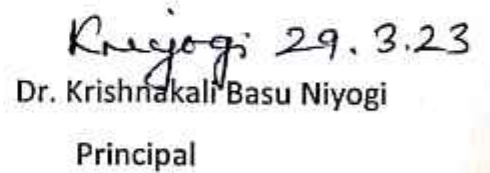 Kniyogi 29.3.23
Dr. Krishnakali Basu Niyogi
Principal